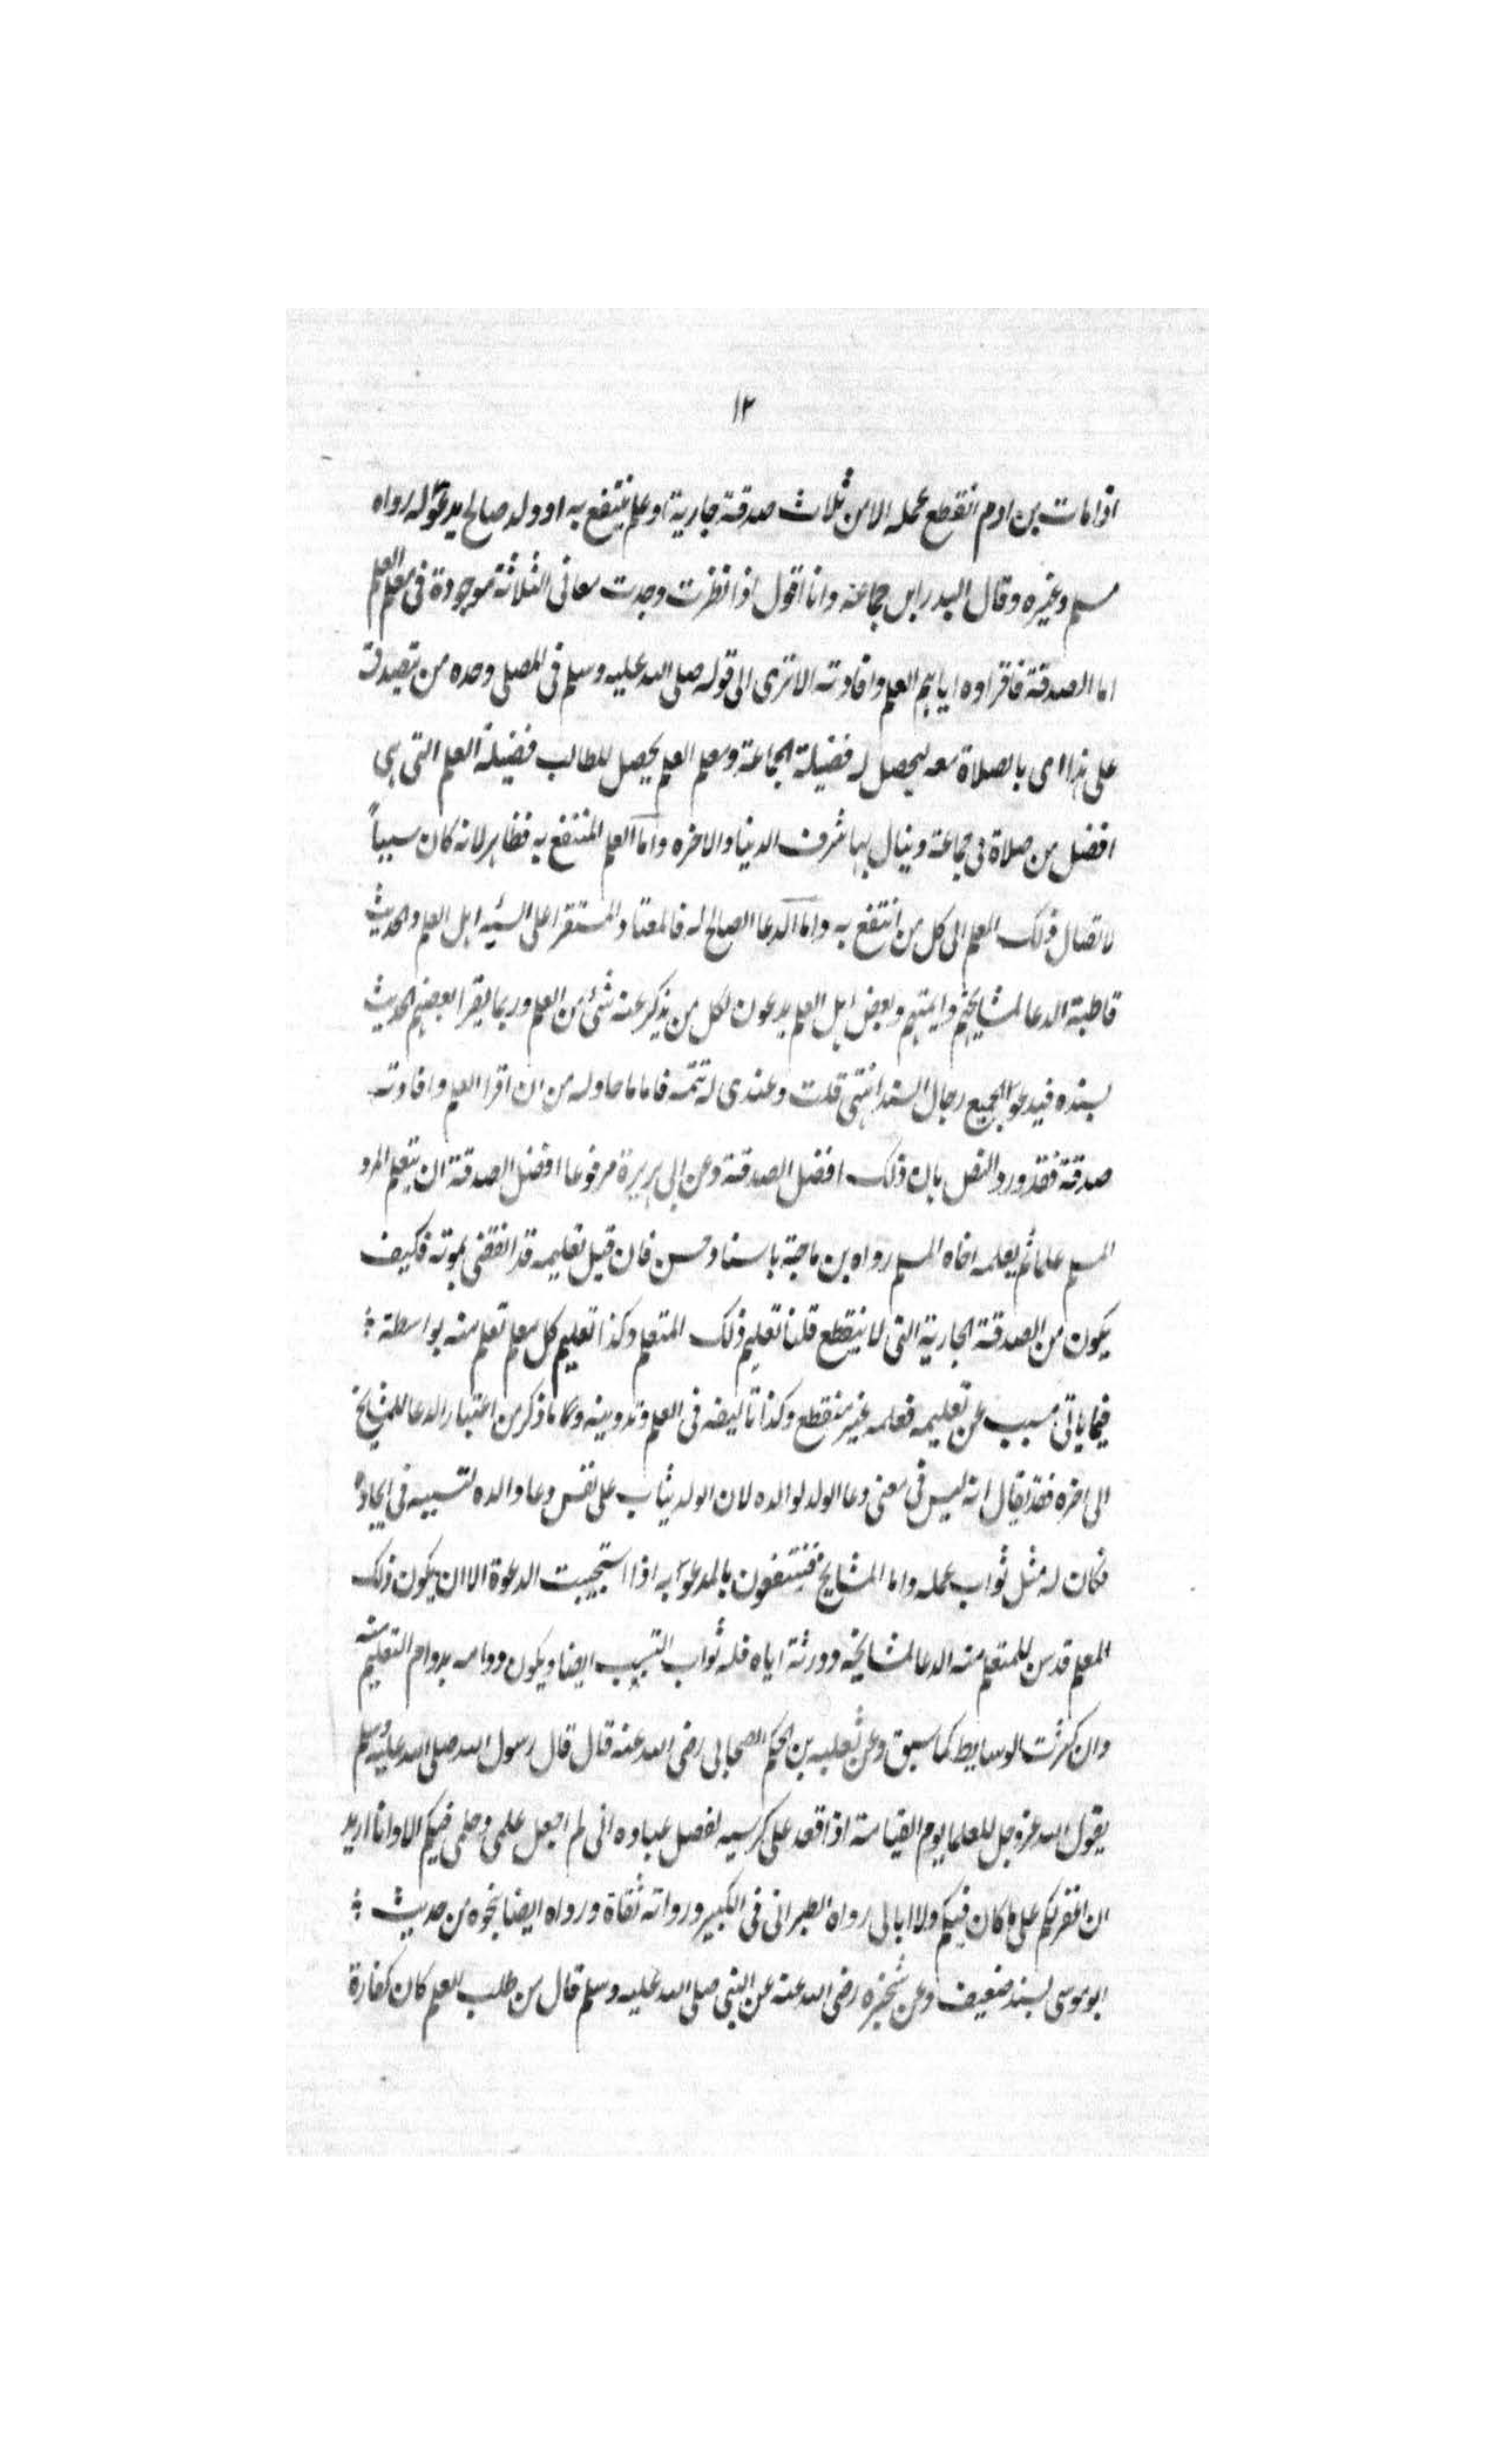 ١٢
اذا مات بن ادم انقطع عمله الا من ثلاث صدقة جارية او علم ينتفع به او ولد صالح يدعو له رواه
مسلم وغيره وقال البدر ابن جماعة وانا اقول اذا نظرت وجدت معانى الثلاثة موجودة فى معلم العلم
اما الصدقة فاقراوه اياهم العلم وافادته الا ترى الى قوله صلى الله عليه وسلم فى المصلى وحده من يتصدق
على هذا اى بالصلاة معه ليحصل له فضيلة الجماعة ومعلم العلم يحصل للطالب فضيلة العلم التى هى
افضل من صلاة فى جماعة وينال بها شرف الدنيا والاخره واما العلم المنتفع به فظاهر لانه كان سبباً
لاتصال ذلك العلم الى كل من انتفع به واما الدعا الصالح له فالمعتاد المستقر اعلى السنة اهل العلم والحديث
قاطبة الدعا لمشايخهم وايمتهم وبعض اهل العلم يدعون لكل من يذكر عنه شئ من العلم وربما يقرا بعضهم الحديث
بسنده فيدعو لجميع رجال السند انتهى قلت وعندى له تتمه فاما ما حاوله من ان اقرا العلم وافادته
صدقة فقد ورد النص بان ذلك افضل الصدقة وعن ابى هريرة مرفوعا افضل الصدقة ان يتعلم المرو
المسلم علما ثم يعلمه اخاه المسلم رواه بن ماجة باسناد حسن فان قيل تعليمه قد انقضى بموته فكيف
يكون من الصدقة الجارية التى لا ينقطع قلنا تعليم ذلك المتعلم وكذا تعليم كل معلم تعلم منه بواسطة
فيما ياتى مسبب عن تعليمه فعلمه غير منقطع وكذا تاليفه فى العلم وتدوينه واما ما ذكر من اعتبار الدعا للمشايخ
الى اخره فقد يقال انه ليس فى معنى دعا الولد لوالده لان الولد يثاب على نفس دعا والده لتسببه فى ايجاده
فكان له مثل ثواب عمله واما المشايخ فينتفعون بالمدعو به اذا استجيبت الدعوة الا ان يكون ذلك
المعلم قد سن للمتعلم منه الدعا لمشايخه وورثة اياه فله ثواب التسبب ايضا ويكون دوامه بدوام التعليم منه
وان كثرت الوسايط كما سبق وعن ثعلبه بن الحكم الصحابى رضى الله عنه قال قال رسول الله صلى الله عليه وسلم
يقول الله عز وجل للعلما يوم القيامة اذا قعد على كرسيه لفصل عباده انى لم اجعل علمى وحلمى فيكم الا وانا اريد
ان اغفر لكم على ما كان فيكم ولا ابالى رواه الطبرانى فى الكبير ورواته ثقاة ورواه ايضا بنحوه من حديث
ابو موسى بسند ضعيف وعن سخبره رضى الله عنه عن النبى صلى الله عليه وسلم قال من طلب العلم كان كفارة